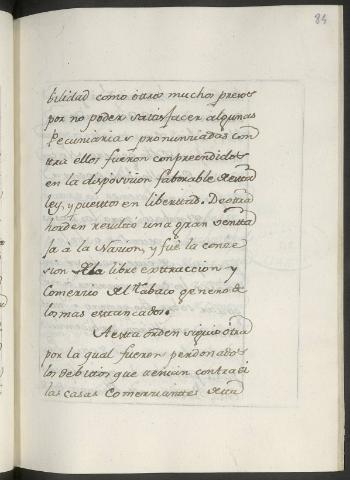 84
bilidad como ottros muchos presos
por no poder sattisfacer algunas
Pecuniarias pronunciadas con
ttra ellos fueron conprendidos
en la disposicion faborable de esta
ley, y puesttos en liberttad. De ottra
horden resultó una gran ventta
ja à la Nacion, y fue la conce
sion de la libre exttraccion y
Comercio del tabaco genero de
los mas esttancados.
A esta orden siguio ottra
por la qual fueron perdonados
los debittos que tenian contra si
las casas Comerciantes de esta